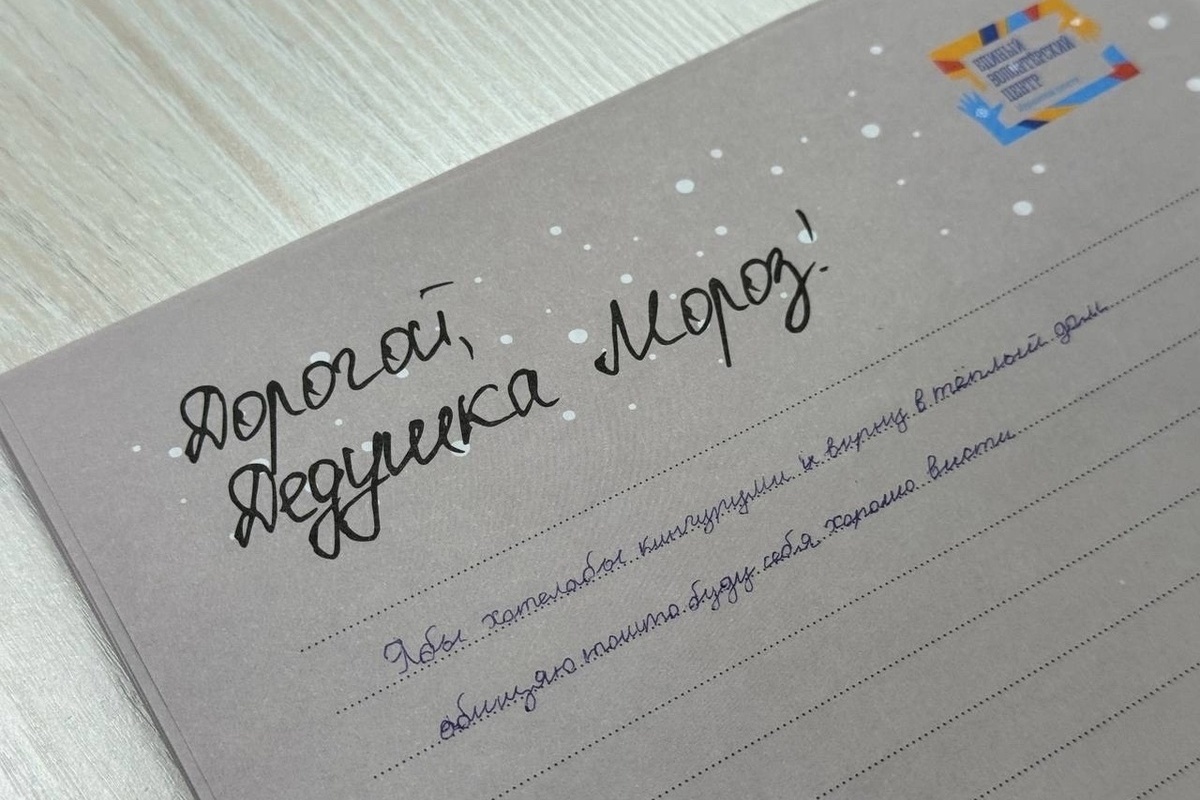 ЕДИНЫЙ
ВОЛОНТЁРСКИЙ
ЦЕНТР
Дорогой,
Дедушка Мороз!
Ябы хотелабы кингуруми и вирнуц в тёплый дом
обищяю тошто буду себя хорошо висти